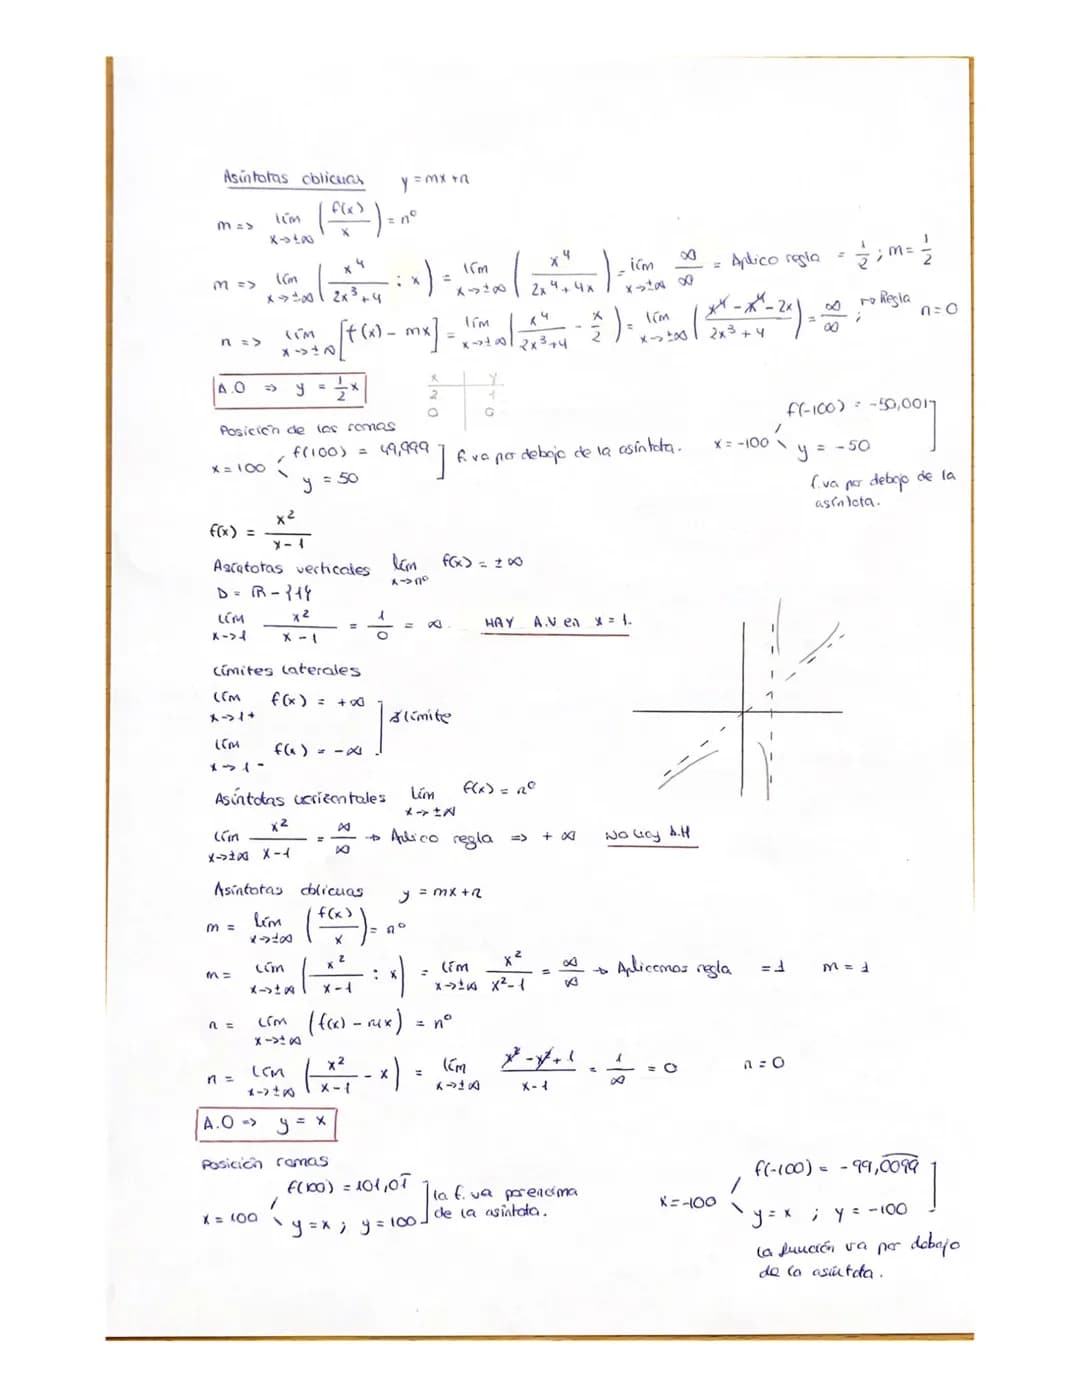 Asíntotas oblicuas y = mx + n
m => lím x→±∞ (f(x)/x) = nº
m => lím x→±∞ (x⁴/(2x³+4) : x) = lím x→±∞ (x⁴/(2x⁴+4x)) = lím x→±∞ ∞/∞ = Aplico regla = 1/2 ; m = 1/2
n => lím x→±∞ [f(x) - mx] = lím x→±∞ (x⁴/(2x³+4) - x/2) = lím x→±∞ ((x⁴-x⁴-2x)/(2x³+4)) = ∞/∞ ; Regla n=0
A.O => y = 1/2 x
x | y
2 | 1
0 | 0
Posición de las ramas
x = 100 f(100) = 49,999 ] f. va por debajo de la asíntota.
y = 50
x = -100 f(-100) = -50,001 ]
y = -50
f. va por debajo de la
asíntota.
f(x) = x²/(x-1)
Asíntotas verticales lím x→nº f(x) = ±∞
D = ℝ - {1}
lím x→1 x²/(x-1) = 1/0 = ∞. HAY A.V en x = 1.
Límites laterales
lím x→1+ f(x) = +∞ ] ∄ límite
lím x→1- f(x) = -∞
Asíntotas horizontales lím x→±∞ f(x) = nº
lím x→±∞ x²/(x-1) = ∞/∞ → Aplico regla => +∞ No hay A.H
Asíntotas oblicuas y = mx + n
m = lím x→±∞ (f(x)/x) = nº
m = lím x→±∞ (x²/(x-1) : x) = lím x→±∞ x²/(x²-1) = ∞/∞ → Aplicamos regla = 1 m = 1
n = lím x→±∞ (f(x) - mx) = nº
n = lím x→±∞ (x²/(x-1) - x) = lím x→±∞ (x²-x²+1)/(x-1) = 1/∞ = 0 n = 0
A.O => y = x
Posición ramas
x = 100 f(100) = 101,01 ] la f. va por encima
y = x ; y = 100 de la asíntota.
x = -100 f(-100) = -99,0099 ]
y = x ; y = -100
la función va por debajo
de la asíntota.